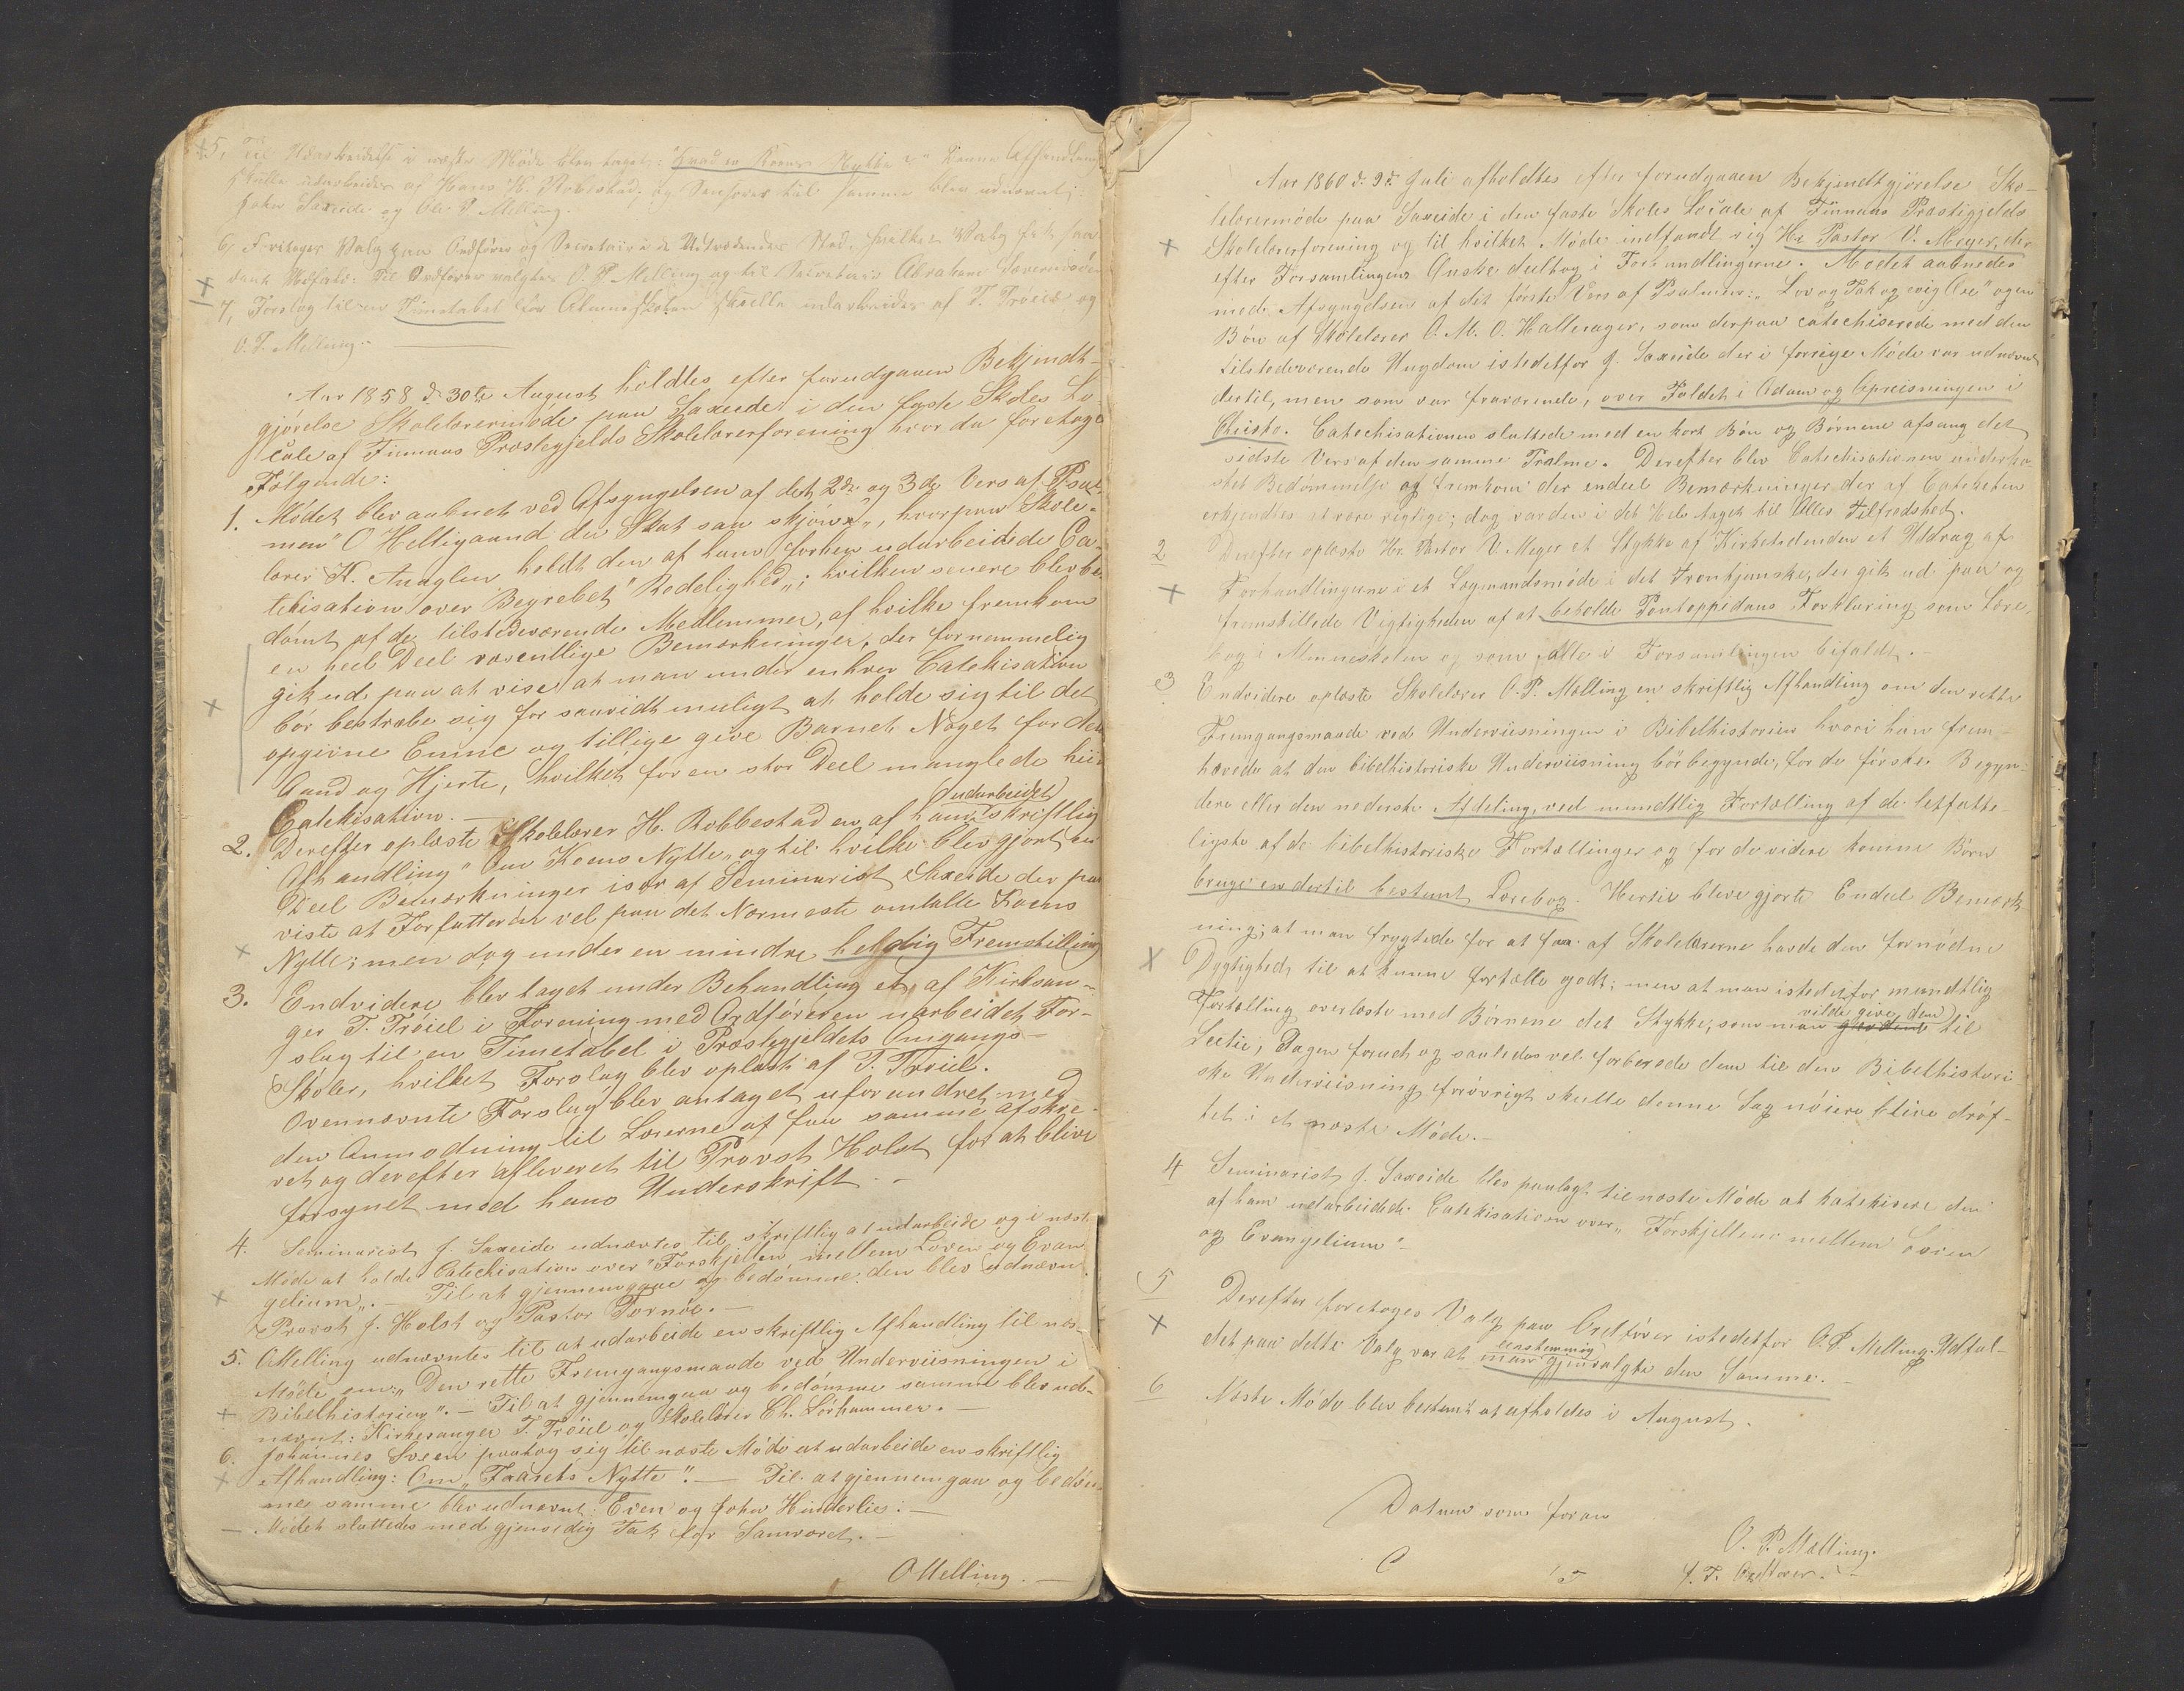 5, Til Udarbeidelse i næste Møde blev taget: "Hvad er Koens Nytte?" Denne Afhandling
skulde udarbeides af Hans H. Robbestad, og Censorer til samme blev udnævnt;
John Saxeide og Ole P. Melling.
6, Foretoges Valg paa Ordfører og Secretair i de Udtrædendes Sted, hvilket Valg fik saa-
dant Udfald: Til Ordfører valgtes O. P. Melling og til Secretair Abraham
7, Forslag til en Timetabel for Almueskolen skulde udarbeides af T. Trøiel og
O. P. Melling.
Aar 1858 d. 30te August holdtes efter forudgaaen Bekjendt-
gjørelse Skolelærermøde paa Saxeide i den faste Skoles Lo-
cale af Finnaas Præstegjelds Skolelærerforening hvor da foretoges
Følgende:
1. Mødet blev aabnet ved Afsyngelsen af det 2de og 3de Vers af Psal-
men "O Helligaand du Skat saa skjøn", hvorpaa Skole-
lærer K. Auaglen holdt den af ham forhen udarbeidede Ca-
tekisation over Begrebet "Redelighed"; hvilken senere blev be-
dømt af de tilstedeværende Medlemmer, af hvilke fremkom
en heel Deel væsentlige Bemærkninger, der fornemmelig
gik ud paa at vise, at man under enhver Catekisation
bør bestræbe sig for saavidt muligt at holde sig til det
opgivne Emne og tillige give Barnet Noget for dets
Aand og Hjerte, hvilket for en stor Deel manglede hiin
Catekisation.
udarbeidet
2. Derefter oplæste Skolelærer H. Robbestad en af ham skriftlig
Afhandling "Om Koens Nytte" og til hvilke blev gjort en
Deel Bemærkninger især af Seminarist Saxeide der paa
viste at Forfatteren vel paa det Nærmeste omtalte Koens
Nytte; men dog under en mindre heldig Fremstilling
3. Endvidere blev taget under Behandling et, af Kirkesan-
ger T. Trøiel i Forening med Ordføreren uarbeidet For-
slag til en Timetabel i Præstegjeldets Omgangs-
Skoler, hvilket Forslag blev oplæst af T. Trøiel.
Ovennævnte Forslag blev antaget uforandret med
den Anmodning til Lærerne at faa samme afskre-
vet og derefter afleveret til Provst Holst for at blive
forsynet med hans Underskrift.
4. Seminarist J. Saxeide udnævntes til skriftlig at udarbeide og i næste
Møde at holde Catechisation over "Forskjellen imellem Loven og Evan-
gelium". — Til at gjennemgaae og bedømme den blev udnævn
Provst J. Holst og Pastor Tornøe. —
5. O Melling udnævntes til at udarbeide en skriftlig Afhandling til næs-
Møde om: "Den rette Fremgangsmaade ved Underviisningen i
Bibelhistorien". — Til at gjennemgaa og bedømme samme blev ud-
nævnt: Kirkesanger T. Trøiel og Skolelærer Ch. Lørhammer. —
6. Johannes Sveen paatog sig til næste Møde at udarbeide en skriftlig
Afhandling: Om "Faarets Nytte". — Til at gjennemgaa og bedøm-
mes samme blev udnævnt: Even og John Hinderlies: —
— Mødet sluttedes med gjensidig Tak for Samværet. —
O Melling. —
Aar 1860 d. 9de Juli afholdtes efter forudgaaen Bekjendtgjørelse Sko-
lelærermøde paa Saxeide i den faste Skoles Locale af Finnaas Præstegjelds
Skolelærerforening og til hvilket Møde indfandt sig Hr Pastor V. Meyer, der
efter Forsamlingens Ønske deeltog i Forhandlingerne. Mødet aabnedes
med Afsyngelsen af det første Vers af Psalmen: "Lov og Tak og evig Ære" og en
Bøn af Skolelærer O. M. O. Hallerager, som derpaa catechiserede med den
tilstedeværende Ungdom istedetfor J. Saxeide der i forrige Møde var udnævnt
dertil, men som var fraværende, over Faldet i Adam og Opreisningen i
Christo. Catechisationen sluttede med en kort Bøn og Børnene afsang det
sidste Vers af den samme Psalme. Derefter blev Catechisationen underka-
stet Bedømmelse og fremkom der endeel Bemærkninger der af Catecheten
erkjendtes at være rigtige; dog var den i det Hele taget til Alles Tilfredshed.
2 Derefter oplæste Hr. Pastor V. Meyer et Stykke af Kirketidenden et Uddrag af
Forhandlingerne i et Lægmandsmøde i det Trontjemske, der gik ud paa og
fremstillede Vigtigheden af at beholde Pontoppidans Forklaring som Lære-
bog i Almueskolen og som Alle i Forsamlingen bifaldt. —
3 Endvidere oplæste Skolelærer O. P. Mælling en skriftlig Afhandling om den rette
Fremgangsmaade ved Underviisningen i Bibelhistorien hvori han frem-
hævede at den bibelhistoriske Underviisning bør begynde, for de første Begyn-
dere eller den nederste Afdeling, ved mundtlig Fortælling af de letfatte
ligste af de bibelhistoriske Fortællinger og for de videre komne Børn
bruge en dertil bestemt Lærebog. Hertil bleve gjorte Endeel Bemærk
ning; at man frygtede for at faa af Skolelærerne havde den fornødne
Dygtighed til at kunne fortælle godt; men at man istedetfor mundtlig
vilde give dem
Fortælling overlæste med Børnene det Stykke, som man gav dem til
Lectie, Dagen forud og saaledes vel forberede dem til den Bibelhistori
ske Underviisning forøvrigt skulle denne Sag nøiere blive drøf-
tet i et næste Møde. —
4 Seminarist J. Saxeide blev paalagt til næste Møde at katekisere den
af ham udarbeidede Catekisation over "Forskjellens mellem Loven
og Evangelium" —
5 Derefter foretoges Valg paa Ordfører istedetfor O. P. Melling. Udfal-
eenstemmig
det paa dette Valg var at man gjenvalgte den Samme. —
6 Næste Møde blev bestemt at afholdes i August.
Datum som foran
O. P. Mælling.
f. T. Ordfører.